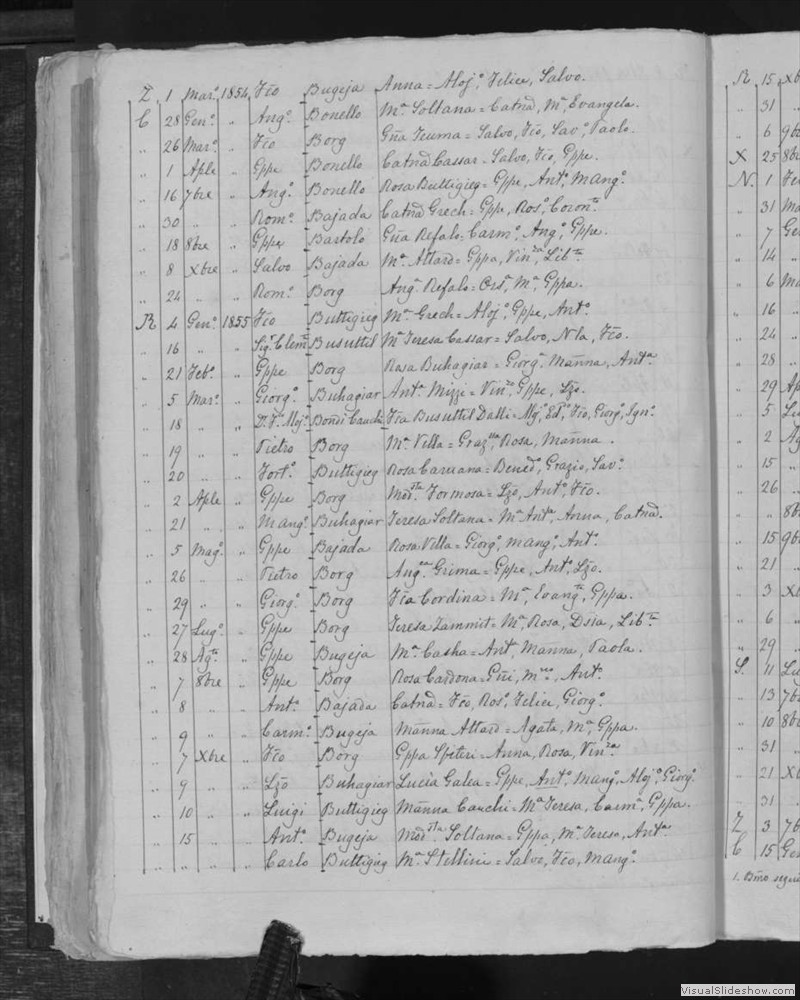 Z 1 Mar.º 1854 Fc̃o Bugeja Anna = Aloj.º Felice, Salvo.
C 28 Gen.º " Ang.º Bonello M.ª Soltana = Catnã, M.ª Evangela.
" 26 Mar.º " Fc̃o Borg Gñà Teuma = Salvo, Fc̃o, Sav.º Paolo.
" 1 Aple " Gppe Bonello Catnã Cassar = Salvo, Fc̃o, Gppe.
" 16 7bre " Ang.º Bonello Rosa Buttigieg = Gppe, Ant.º, M Ang.º
" 30 " " Rom.º Bajada Catnã Grech = Gppa, Ros.ª, Coron.ta
" 18 8bre " Gppe Bartolo Gñà Refalo = Carm.º, Ang.º, Gppe.
" 8 Xbre " Salvo Bajada M.ª Attard = Gppa, Vin.za, Lib.ta
" 24 " " Rom.º Borg Ang.ª Refalo = M.ª, Gppa.
R 4 Gen.º 1855 Fc̃o Buttigieg M.ª Grech = Aloj.º, Gppe, Ant.º
" 16 " " Sig.r Clem.te Busuttil M.ª Teresa Cassar = Salvo, Nla, Fc̃o.
" 21 Feb.º " Gppe Borg Rosa Buhagiar = Giorg.ª Mañna, Ant.ª
" 5 Mar.º " Giorg.º Buhagiar Ant.ª Mizzi = Vin.zo, Gppe, Lzo.
" 18 " " Aloj.º Bondi Cauchi Fc̃a Busuttil Dalli = Fc̃o, Giorg.º, Ign.º
" 19 " " Pietro Borg M.ª Villa = Graz.lla, Rosa, Mañna.
" 20 " " Fort.º Buttigieg Rosa Caruana = Bened.º, Grazio, Sav.º
" 2 Aple " Gppe Borg Mod.sta Formosa = Lzo, Ant.º, Fc̃o.
" 21 " " M Ang.º Buhagiar Teresa Soltana = M.ª Ant.ª, Anna, Catnã.
" 5 Mag.º " Gppe Bajada Rosa Villa = Giorg.º, M Ang.º, Ant.º
" 26 " " Pietro Borg Ang.ca Grima = Gppe, Ant.º, Lzo.
" 29 " " Giorg.º Borg Fc̃a Cordina = M.ª, Evang.ta, Gppa.
" 27 Lug.º " Gppe Borg Teresa Zammit = M.ª, Rosa, Lib.ta
" 28 Ag.to " Gppe Bugeja M.ª Casha = Ant.ª, Mañna, Paola.
" 7 8bre " Gppe Borg Rosa Cardona = Ant.º
" 8 " " Ant.º Bajada Catnã = Fc̃o, Ros.º, Felice, Giorg.º
" 9 " " Carm.º Bugeja Mañna Attard = Agata, M.ª, Gppa.
" 7 Xbre " Fc̃o Borg Gppa Spiteri = Anna, Rosa, Vin.za
" 9 " " Lzo Buhagiar Lucia Galea = Gppe, Ant.º, M Ang.º, Aloj.º, Giorg.º
" 10 " " Luigi Buttigieg Mañna Cauchi = M.ª Teresa, Carm.ª, Gppa.
" 15 " " Ant.º Bugeja Mod.sta Soltana = Gppa, M.ª Teresa, Ant.ª
" " " " Carlo Buttigieg M.ª Stellini = Salvo, Fc̃o, M Ang.º
R 15 Xb
" 31 "
" 6 9b
X 25 8br
N. 1 Fe
" 31 Ma
" 7 Ge
" 14 "
" 6 Ma
" 16 "
" 24 "
" 28 "
" 29 Ap
" 5 Lu
" 2 Ag
" 15 "
" 26 "
" " 8b
" 15 9b
" 21 "
" 3 Xb
" 6 "
" 29 "
S. 11 Lu
" 13 7b
" 10 8b
" 31 "
" 21 Xb
" 31 "
Z 3 7b
C 15 Ge
VisualSlideshow.com